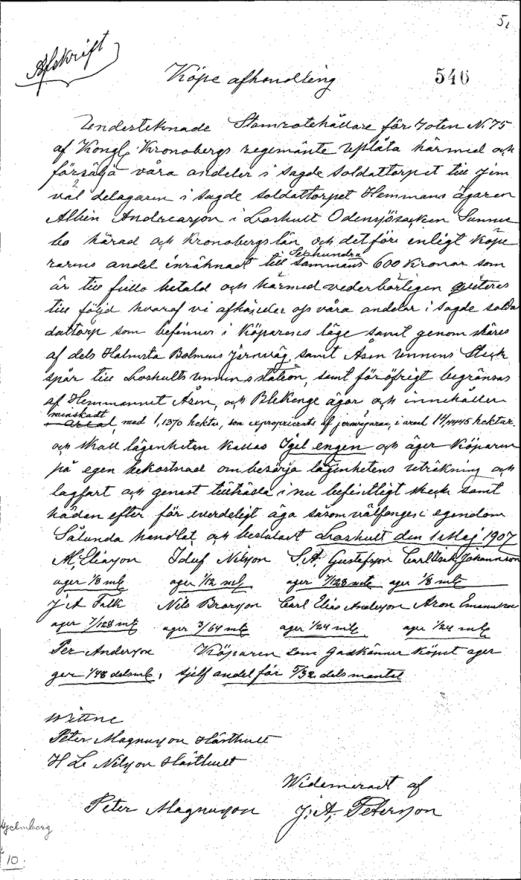 5,
Afskrift
Köpe afhandling 546
Undertecknade Stamrotehållare för Roten N. 75
af Kongl Kronobergs regemänte uplåta härmed och
försälja våra andeler i sagde soldattorpet till
väl delagaren i sagde soldattorpet Hemmans ägaren
Albin Andreasson i Loshult Odensjösocken Sunner
bo härad och Kronobergslän, och det före enligt Köpa
rarens andel inräknadt till Sexhundra 600 Kronor som
är till fullo betald och härmed vederbörligen qviteres
till följd hvaraf vi afhänder oss våra andelar i sagde solda
dattorp som befinnes i Köparens läge samt genom skäres
af dels Halmsta Bolmens Jernväg, samt Åsen
spår till Loshults station, samt föröfrigt begränsas
af Hemmannet Åsen, och Blekenge ägor och innehåller
minskadt
areal med 1,1370 hektar, som exproprierats af jernvägen, i areal 14,4445 hektar.
och skall lägenheten kallas Igel engen och äger Köparen
på egen bekostnad ombesörja lägenhetens uträkning och
lagfart och genast tillträda i nu befintligt skick samt
häden efter för everdeligt äga såsom välfånget egendom
Sålunda handlat och beslutadt Loshult den 1 Maj 1907
M. Eliasson Josef Nilsson S. A. Gustafsson Carl Johansson
ager 1/8 mtl ager 1/12 mtl ager 7/128 mtl ager 1/8 mtl
J A Falk Nils Brorsson Carl Elis Andersson Aron Emanuelsson
ager 7/128 mtl ager 3/64 mtl ager 1/24 mtl ager 1/24 mtl
Per Andersson Köparen som gadkänner köpet ager
ger 1/48 dels mtl, sjelf andel för 3/32 dels mantal
Wittne
Peter Magnusson Hårthult
H L Nilsson Hårthult
Widemeradt af
Peter Magnusson J. A. Peterson
Hjelmborg
10